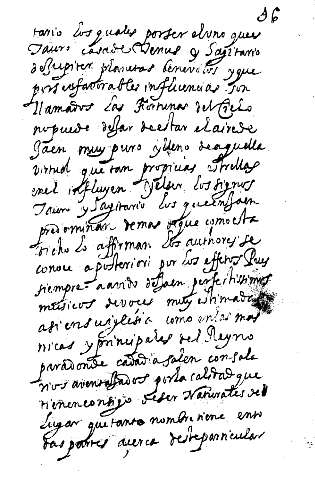 96
tario los quales por ser el uno ques
Tauro casa de Venus y Sagitario
de Jupiter planetas benevolos y que
por sus favorables influencias son
llamados las fortunas del Cielo
no puede dejar de estar el aire de
Jaen muy puro y lleno de aquella
virtud que tan propicias estrellas
en el influyen y el ser los signos
Tauro y Sagitario los que en Jaen
predominan demas de que como esta
dicho lo affirman los authores se
conoce a posteriori por los effetos Pues
siempre a avido de Jaen perfectissimos
musicos de voces muy estimadas
asi en su iglesia como en las mas
ricas y principales del Reyno
para donde cada dia salen con sala
rios aventajados por la calidad que
tienen consigo de ser Naturales del
Lugar que tanto nombre tiene en to
das partes acerca deste particular